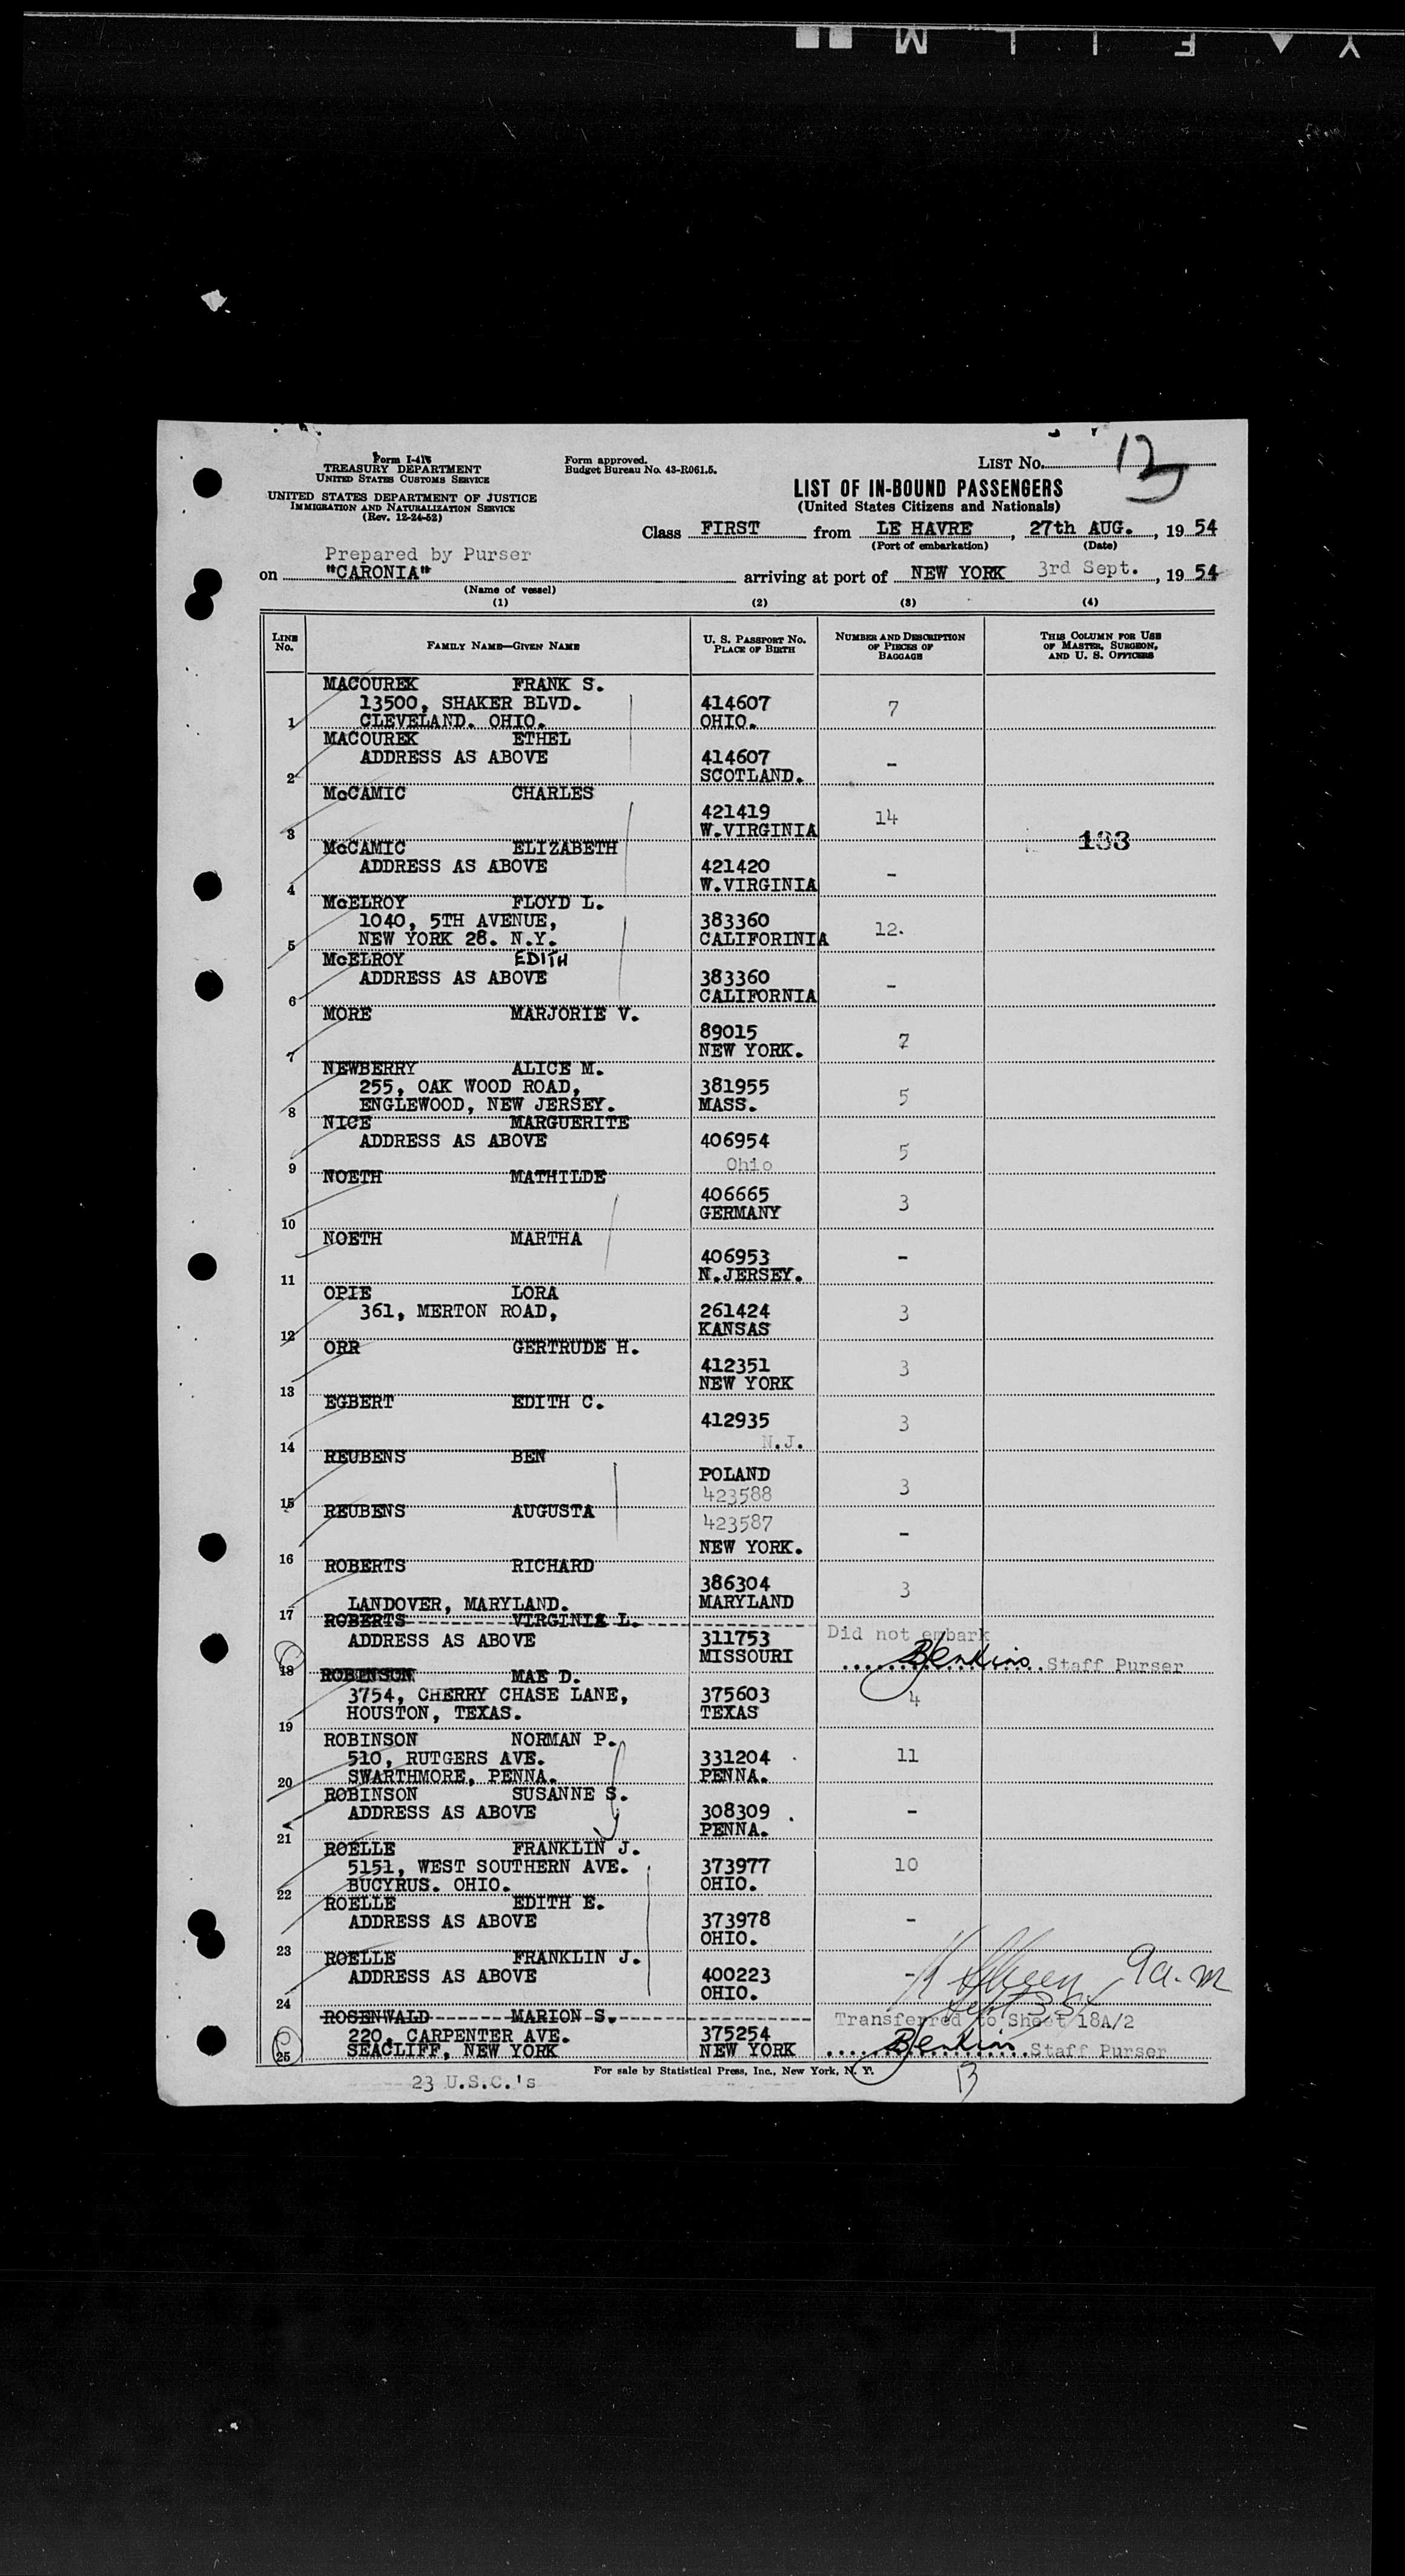 Y FILM
Form I-418
TREASURY DEPARTMENT
UNITED STATES CUSTOMS SERVICE
UNITED STATES DEPARTMENT OF JUSTICE
IMMIGRATION AND NATURALIZATION SERVICE
(Rev. 12-24-52)
Form approved.
Budget Bureau No. 43-R061.5.
LIST No. 13
LIST OF IN-BOUND PASSENGERS
(United States Citizens and Nationals)
Class FIRST from LE HAVRE, 27th AUG., 1954
(Port of embarkation) (Date)
Prepared by Purser
on "CARONIA" arriving at port of NEW YORK 3rd Sept., 1954
(Name of vessel)
(1) (2) (3) (4)
LINE No. FAMILY NAME—GIVEN NAME U. S. PASSPORT NO. PLACE OF BIRTH NUMBER AND DESCRIPTION OF PIECES OF BAGGAGE THIS COLUMN FOR USE OF MASTER, SURGEON, AND U. S. OFFICERS
MACOUREK FRANK S.
13500, SHAKER BLVD. 414607 7
1 CLEVELAND. OHIO. OHIO.
MACOUREK ETHEL
ADDRESS AS ABOVE 414607 -
2 SCOTLAND.
McCAMIC CHARLES
421419 14
3 W.VIRGINIA 133
McCAMIC ELIZABETH
ADDRESS AS ABOVE 421420 -
4 W.VIRGINIA
McELROY FLOYD L.
1040, 5TH AVENUE, 383360 12.
5 NEW YORK 28. N.Y. CALIFORINIA
McELROY EDITH
ADDRESS AS ABOVE 383360 -
6 CALIFORNIA
MORE MARJORIE V.
89015 7
7 NEW YORK.
NEWBERRY ALICE M.
255, OAK WOOD ROAD, 381955 5
8 ENGLEWOOD, NEW JERSEY. MASS.
NICE MARGUERITE
ADDRESS AS ABOVE 406954 5
9 Ohio
NOETH MATHILDE
406665 3
10 GERMANY
NOETH MARTHA
406953 -
11 N.JERSEY.
OPIE LORA
361, MERTON ROAD, 261424 3
12 KANSAS
ORR GERTRUDE H.
412351 3
13 NEW YORK
EGBERT EDITH C.
412935 3
14 N.J.
REUBENS BEN
POLAND 3
15 423588
REUBENS AUGUSTA
423587 -
16 NEW YORK.
ROBERTS RICHARD
386304 3
17 LANDOVER, MARYLAND. MARYLAND
ROBERTS VIRGINIA L.
ADDRESS AS ABOVE 311753 Did not embark
18 MISSOURI BJenkins Staff Purser
ROBINSON MAE D.
3754, CHERRY CHASE LANE, 375603 4
19 HOUSTON, TEXAS. TEXAS
ROBINSON NORMAN P.
510, RUTGERS AVE. 331204 11
20 SWARTHMORE, PENNA. PENNA.
ROBINSON SUSANNE S.
ADDRESS AS ABOVE 308309 -
21 PENNA.
ROELLE FRANKLIN J.
5151, WEST SOUTHERN AVE. 373977 10
22 BUCYRUS. OHIO. OHIO.
ROELLE EDITH E.
ADDRESS AS ABOVE 373978 -
23 OHIO.
ROELLE FRANKLIN J.
ADDRESS AS ABOVE 400223 - 9a.m
24 OHIO. Sept 3 54
ROSENWALD MARION S. Transferred to Sheet 18A/2
220, CARPENTER AVE. 375254
25 SEACLIFF, NEW YORK NEW YORK BJenkins Staff Purser
For sale by Statistical Press, Inc., New York, N. Y.
23 U.S.C.'s 13